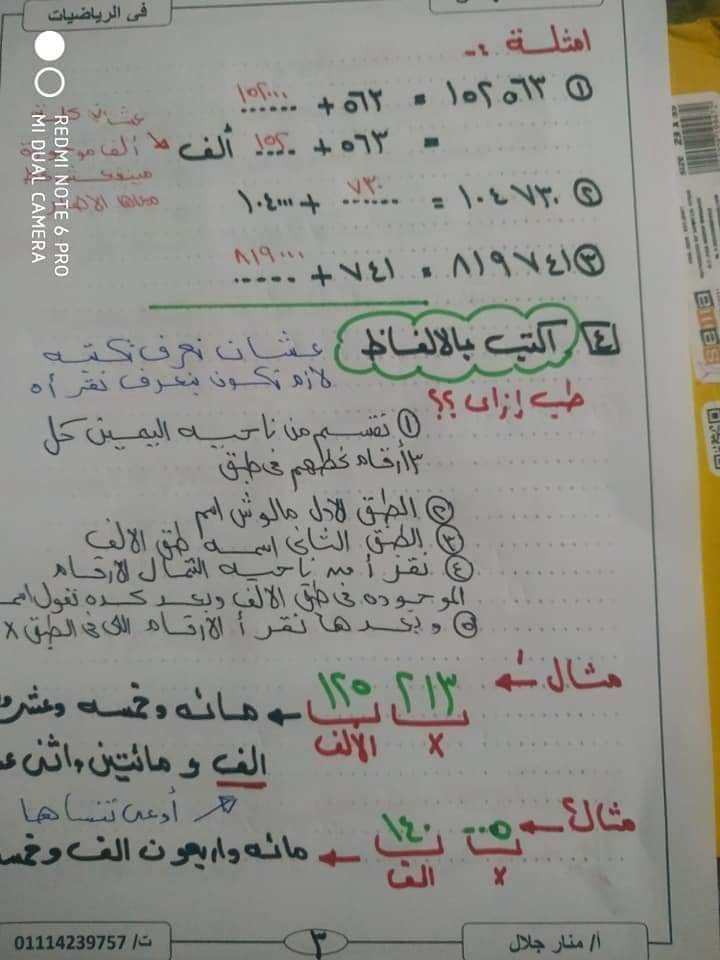 فى الرياضيات
امثلة :-
① ١٥٢٥٦٣ = ٥٦٣ + ١٥٢٠٠٠
= ٥٦٣ + ١٥٢ ألف
عشان كلمة
ألف موجودة
② ١٠٤٧٣٠ = ٧٣٠ + ١٠٤٠٠٠
③ ٨١٩٧٤١ = ٧٤١ + ٨١٩٠٠٠
٤ اكتب بالالفاظ
عشان نعرف نكتبه
لازم نكون بنعرف نقرأه
طب إزاى ؟؟
① نقسم من ناحيه اليمين كل
٣ أرقام نحطهم فى طبق
② الطبق الاول مالوش اسم
③ الطبق الثانى اسمه طبق الالف
④ نقرأ من ناحيه الشمال الارقام
الموجوده فى طبق الالف وبعد كده نقول اسمه
⑤ وبعدها نقرأ الارقام اللى فى الطبق x
مثال ١ ← ١٢٥ ٢١٣ ← مائه وخمسه وعشر
الالف x
الف و مائتين واثنى ع
أوعى تنساها
مثال ٢ ← ١٤٠ ٠٠٥ ← مائه واربعون الف وخمسه
الف x
أ/ منار جلال
٣
ت/ 01114239757
REDMI NOTE 6 PRO
MI DUAL CAMERA